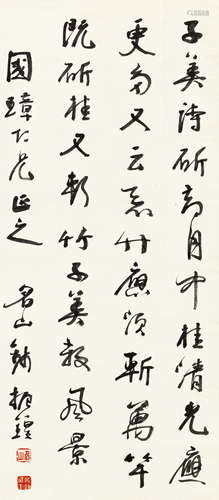 子美詩斫却月中桂清光應
更多又云惡竹應須斬萬竿
既斫桂又斬竹子美殺風景
國璋仁兄正之 名山錢振鍠